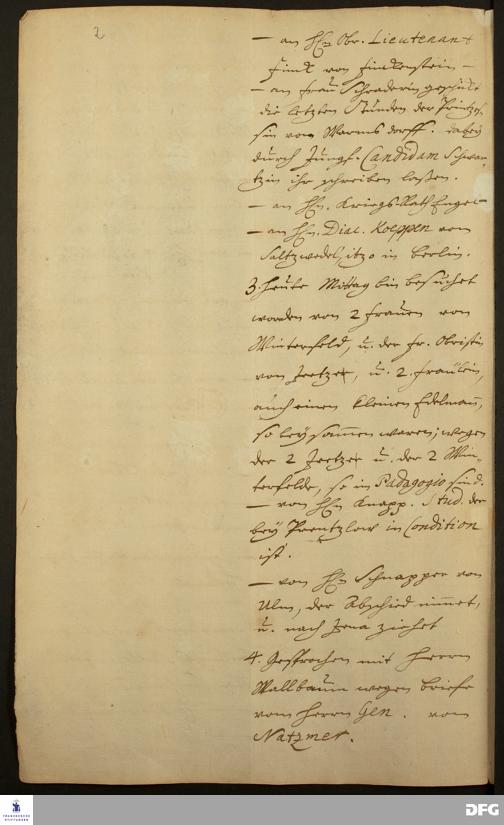 2
— an Hn Obr. Lieutenant
Finck von Finckenstein —
— an Frau Schraderin geschickt
die letzten Stunden der Printzes-
sin von Warmsdorff. dabey
durch Jungf. Candidam Schwar-
tzin ihr schreiben lassen.
— an Hn. Kriegs-Rath Engel
— an Hn. Diac. Koeppen von
Saltzwedel, itzo in Berlin.
3. Heute Mittag bin besuchet
worden von 2 Frauen von
Winterfeld, u. der Fr. Obristin
von Jeetzen, u. 2. Fräulein,
auch einen kleinen Edelmann,
so beysammen waren; wegen
der 2 Jeetzen u. der 2 Win-
terfelde, so in Pædagogio sind.
— von Hn Knapp. Stud. der
bey Prentzlow in Condition
ist.
— von Hn Schnapper von
Ulm, der Abschied nimmet,
u. nach Jena ziehet
4. Gesprochen mit Herrn
Wallbaum wegen briefe
vom Herrn Gen. von
Natzmer.
FRANCKESCHE
STIFTUNGEN
DFG